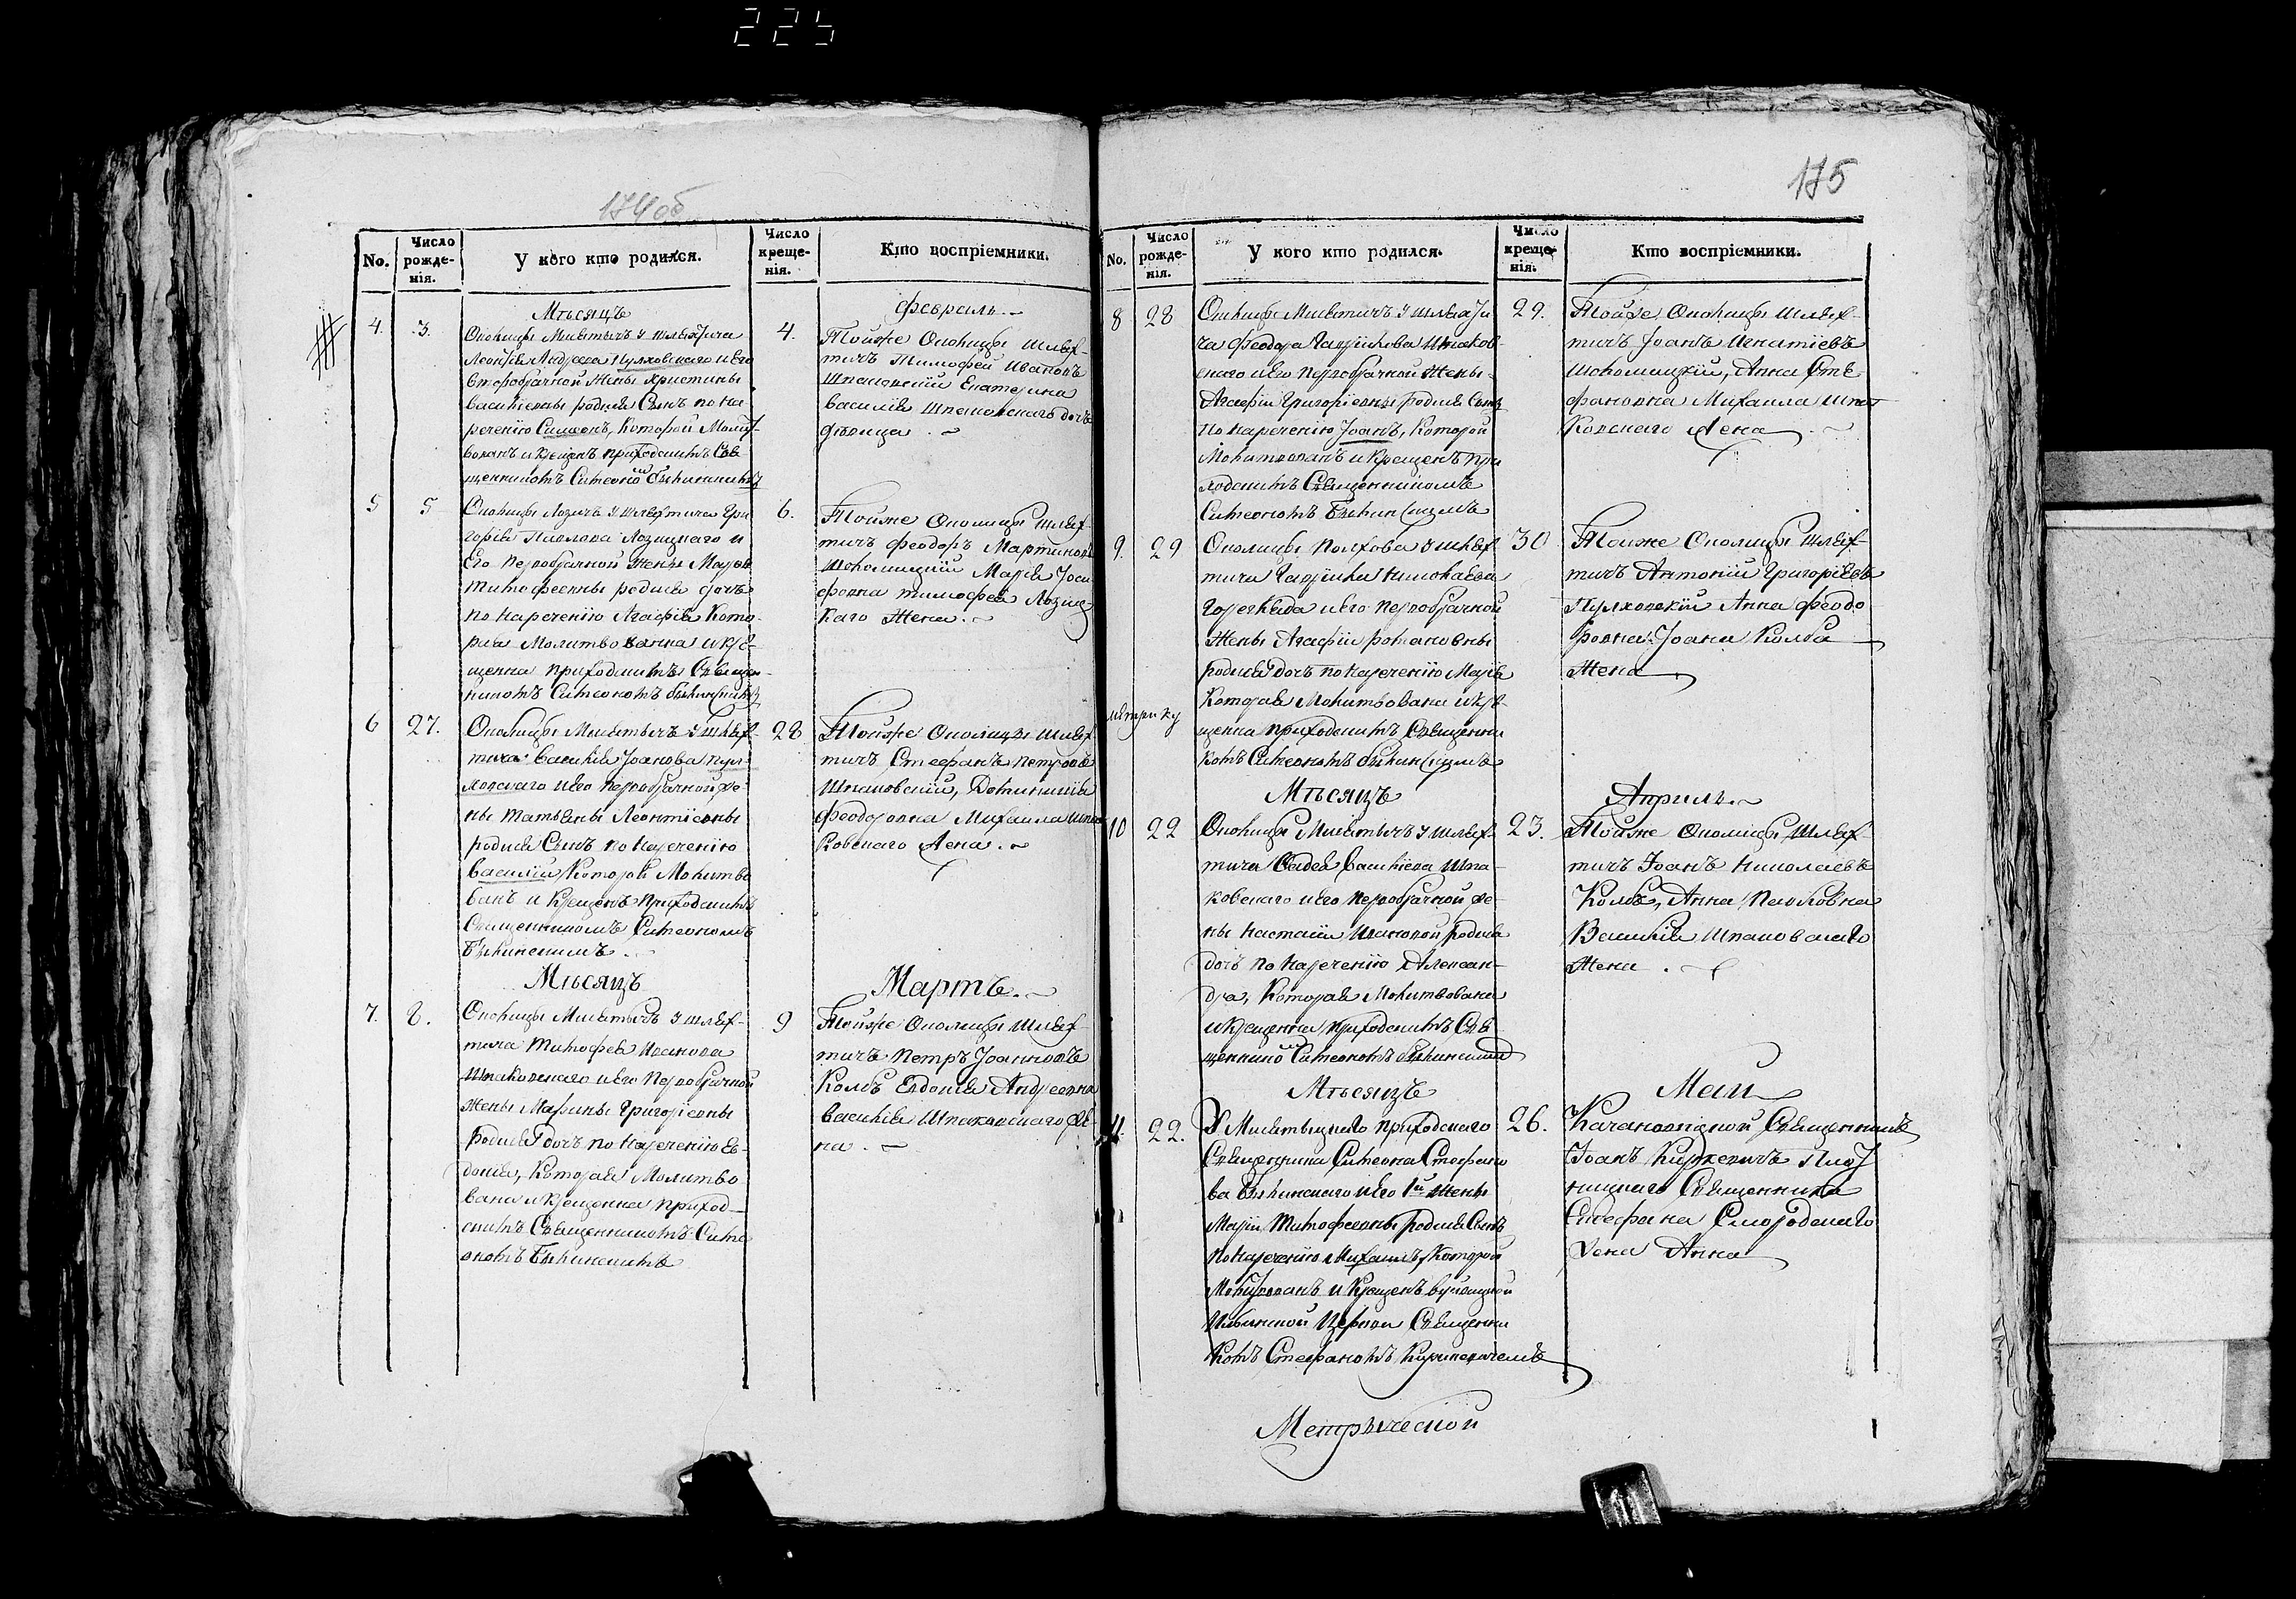 225
174об
No.
Число рожде-нія.
У кого кто родился.
Число креще-нія.
Кто воспріемники.
Мѣсяцъ
Февраль.
4. 3.
Околицы Милятычъ у шляхтича
Леонтія Андреева Пулховскаго и его
второбрачной Жены Христины
Василіевны родися Сынъ по на
реченію Симеонъ, который Молит
вованъ и Крещенъ приходскимъ Свя
щенникомъ Симеономъ
4.
Тойже Околицы Шлях-
тичъ Тимофей Ивановъ
Шпаковскій Екатерина
Василія Шпаковскаго дочь
дѣвица.
5 5
Околицы Лозичъ у шляхтича Гри
горія Павлова Лозицкаго и
Его первобрачной Жены Маріи
Тимофеевны родися дочь
по нареченію Агафія Кото-
рая Молитвованна и Кре-
щенна приходскимъ Священ-
никомъ Симеономъ
6.
Тойже Околицы Шлях-
тичъ Феодоръ Мартиновъ
Шоломицкій Марія Іоси
фовна Тимофея Лозиц
Каго Жена.
6 27.
Околицы Милятычъ у шлях-
тича Василія Іоанова Пул-
ховскаго и его первобрачной Же-
ны Татьяны Леонтіевны
родися Сынъ по нареченію
Василій Который Молитво
ванъ и Крещенъ приходскимъ
Священникомъ Симеономъ
28
Тойже Околицы Шлях
тичъ Стефанъ Петровъ
Шпаковскій, Домникія
Феодоровна Михаила Шпа
Ковскаго Жена.
Мѣсяцъ
Мартъ.
7. 8.
Околицы Милятычъ у шлях-
тича Тимофея Иванова
Шпаковскаго и его первобрачной
Жены Марины Григоріевны
родися дочь по нареченію Ев-
докія, Которая Молитво
вана и Крещенна приход-
скимъ Священникомъ Симе
ономъ
9
Тойже Околицы Шлях-
тичъ Петръ Іоанновъ
Колбъ Евдокія Андреевна
Василія Шпаковскаго Же-
на.
175
No.
Число рожде-нія.
У кого кто родился.
Число креще-нія.
Кто воспріемники.
8 28
Околицы Милятичъ у шляхти
ча Феодора Гаврилова Шпаков-
скаго и его первобрачной Жены
Агафіи Григоріевны родися Сынъ
по нареченію Іоанъ, Который
Молитвованъ и Крещенъ при
ходскимъ Священникомъ
Симеономъ
29.
Тойже Околицы Шлях-
тичъ Іоанъ Игнатіевъ
Шоломицкій, Анна Сте-
фановна Михаила Шпа
Ковскаго Жена
9. 29
Околицы у шлях
тича Гаврила Николаева
и его первобрачной
Жены Агафіи Романовны
родися дочь по нареченію Марія
Которая Молитвована и Кре-
щенна приходскимъ Священни
комъ Симеономъ
метрику
30
Тойже Околицы Шлях-
тичъ Антоній Григоріевъ
Пулховскій Анна Феодо
ровна Іоана Колба
Жена
Мѣсяцъ
Апрѣль.
10 22
Околицы Милятычъ у шлях-
тича Фадея Василіева Шпа-
ковскаго и его первобрачной Же-
ны Настасіи Ивановой родися
дочь по нареченію Алексан-
дра, Которая Молитвована
и крещенна приходскимъ Свя-
щенникомъ Симеономъ
23.
Тойже Околицы Шлях-
тичъ Іоанъ Николаевъ
Колбъ, Анна Павловна
Василія Шпаковскаго
Жена.
Мѣсяцъ
Маи
11. 22.
У Милятыцкаго приходскаго
Священника Симеона Стефано
ва и его 1й Жены
Маріи Тимофеевны родися Сынъ
по нареченію Михаилъ, Который
Молитвованъ и Крещенъ
Церкви Священни
комъ Стефаномъ
26.
Священникъ
Іоанъ
Священника
Стефана Смородскаго
Жена Анна
Метрической